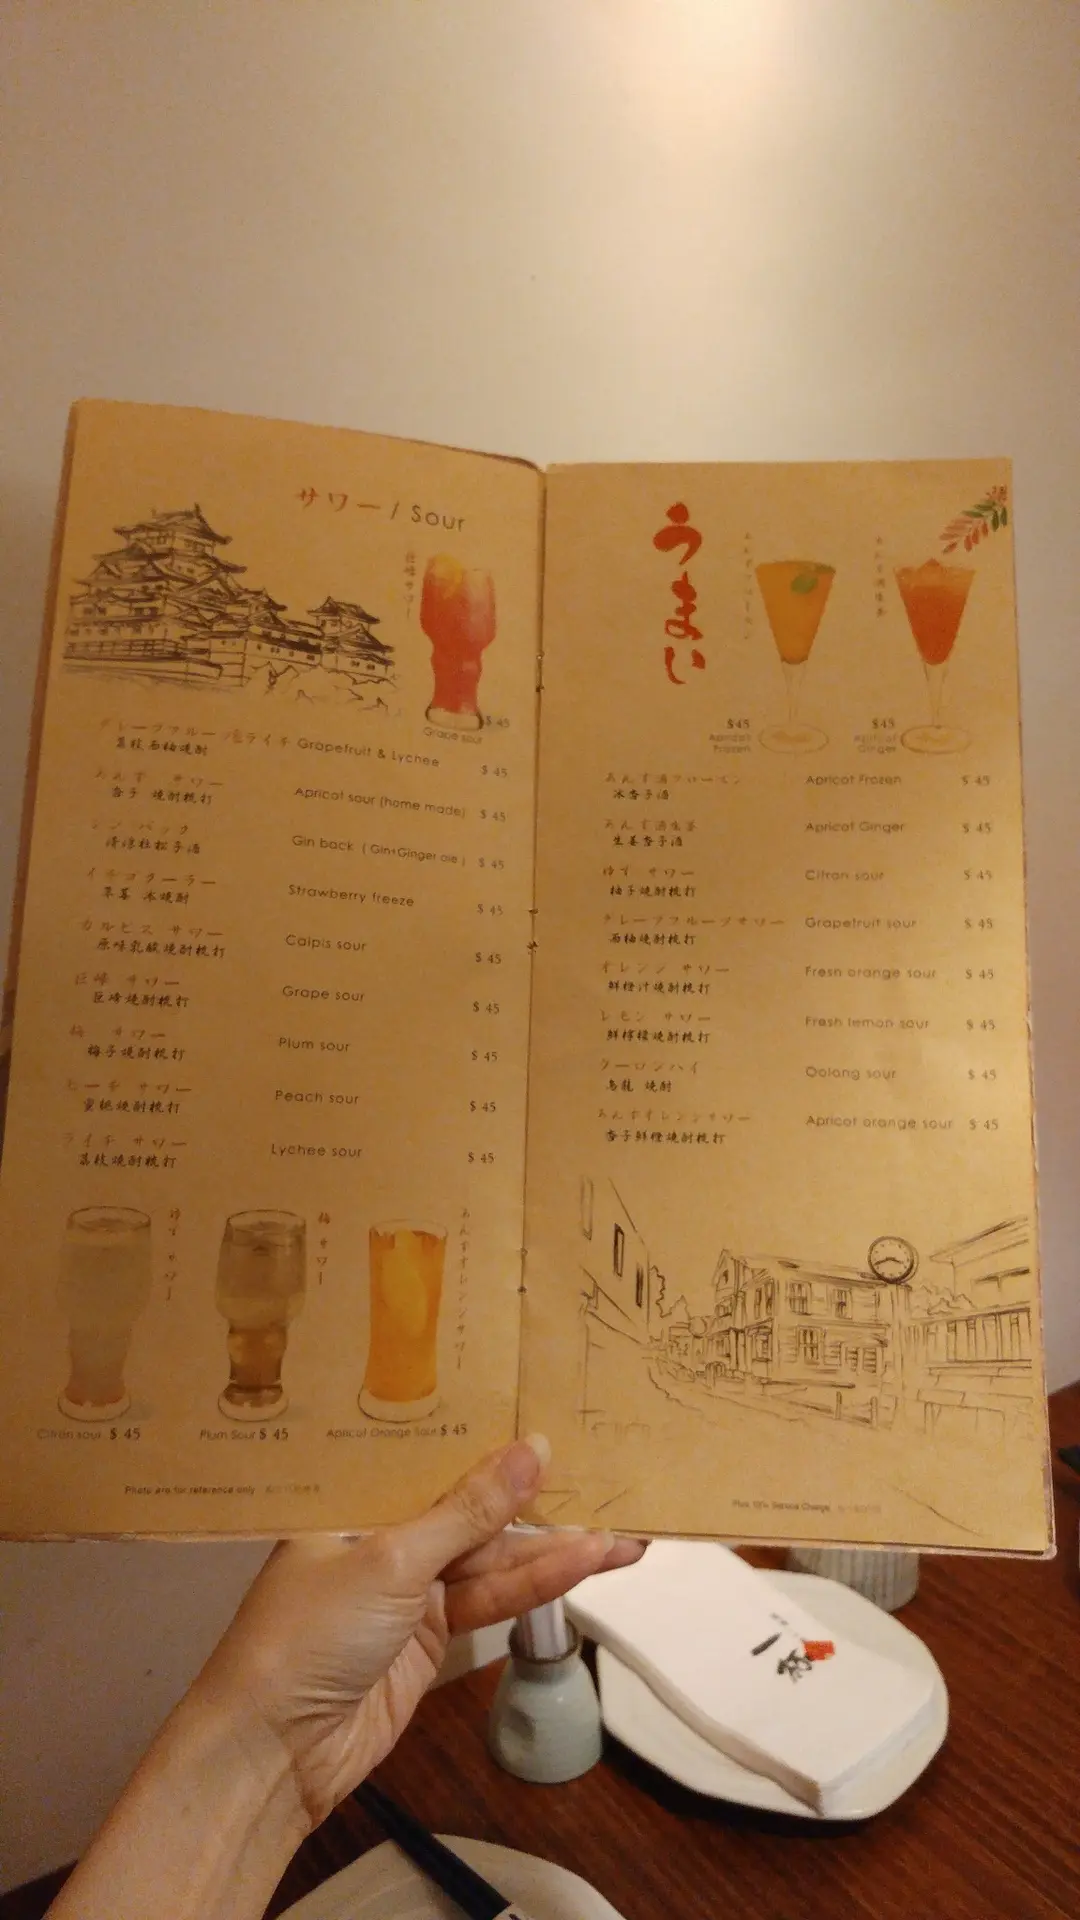 サワー / Sour
巨峰サワー
$ 45
Grape sour
グレープフルーツ塩ライチ Grapefruit & Lychee $ 45
荔枝西柚燒酎
あんず サワー Apricot sour (home made) $ 45
杏子 燒酎梳打
ジン バック Gin back ( Gin+Ginger ale ) $ 45
清涼杜松子酒
イチゴクーラー Strawberry freeze $ 45
草莓 冰燒酎
カルピス サワー Calpis sour $ 45
原味乳酸燒酎梳打
巨峰 サワー Grape sour $ 45
巨峰燒酎梳打
梅 サワー Plum sour $ 45
梅子燒酎梳打
ピーチ サワー Peach sour $ 45
蜜桃燒酎梳打
ライチ サワー Lychee sour $ 45
荔枝燒酎梳打
ゆずサワー
梅サワー
あんずオレンジサワー
Citron sour $ 45
Plum Sour $ 45
Apricot Orange Sour $ 45
Photo are for reference only
うまい
$45
Apricot
Frozen
$45
Apricot
Ginger
あんず酒フローズン Apricot Frozen $ 45
冰杏子酒
あんず酒生姜 Apricot Ginger $ 45
生姜杏子酒
ゆず サワー Citron sour $ 45
柚子燒酎梳打
グレープフルーツサワー Grapefruit sour $ 45
西柚燒酎梳打
オレンジ サワー Fresh orange sour $ 45
鮮橙汁燒酎梳打
レモン サワー Fresh lemon sour $ 45
鮮檸檬燒酎梳打
ウーロンハイ Oolong sour $ 45
烏龍 燒酎
あんずオレンジサワー Apricot orange sour $ 45
杏子鮮橙燒酎梳打
Plus 10% Service Charge
一